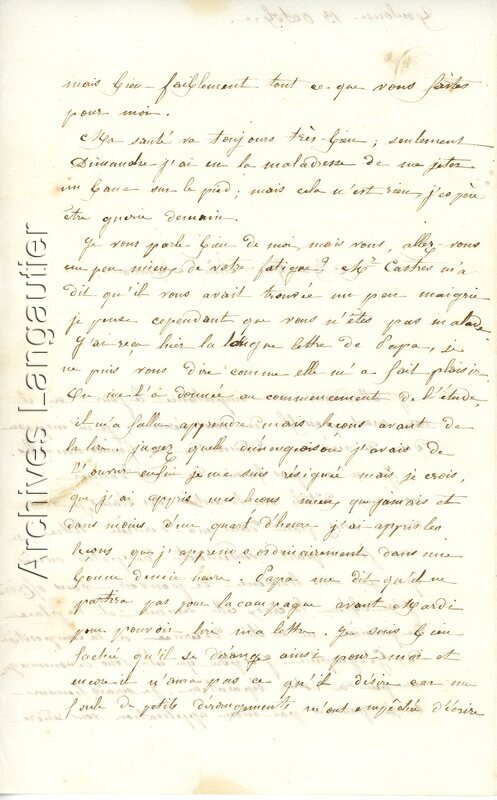 mais bien faiblement tout ce que vous faites
pour moi.
Ma santé va toujours très-bien ; seulement
Dimanche j'ai eu la maladresse de me jeter
un banc sur le pied ; mais cela n'est rien, j'espère
être guérie demain.
Je vous parle bien de moi, mais vous, allez-vous
un peu mieux de votre fatigue? Mr Castres m'a
dit qu'il vous avait trouvée un peu maigrie
je pense cependant que vous n'êtes pas malade.
J'ai reçu hier la longue lettre de Papa, je
ne puis vous dire comme elle m'a fait plaisir
On me l'a donnée au commencement de l'étude,
il m'a fallu apprendre mais leçons avant de
la lire. jugez quelle demengeaison j'avais de
l'ouvrir enfin je me suis résignée mais je crois,
que j'ai appris mes leçons mieux que jamais et
dans moins d'un quart d'heure j'ai appris les
leçons que j'apprend ordinairement dans une
bonne demie heure. Papa me dit qu'il ne
partira pas pour la campagne avant Mardi
pour pouvoir lire ma lettre. Je suis bien
fachée qu'il se dérange ainsi pour moi et
encore il n'aura pas ce qu'il désire car une
foule de petits dérangements m'ont empêchée d'écrire
Archives Langautier